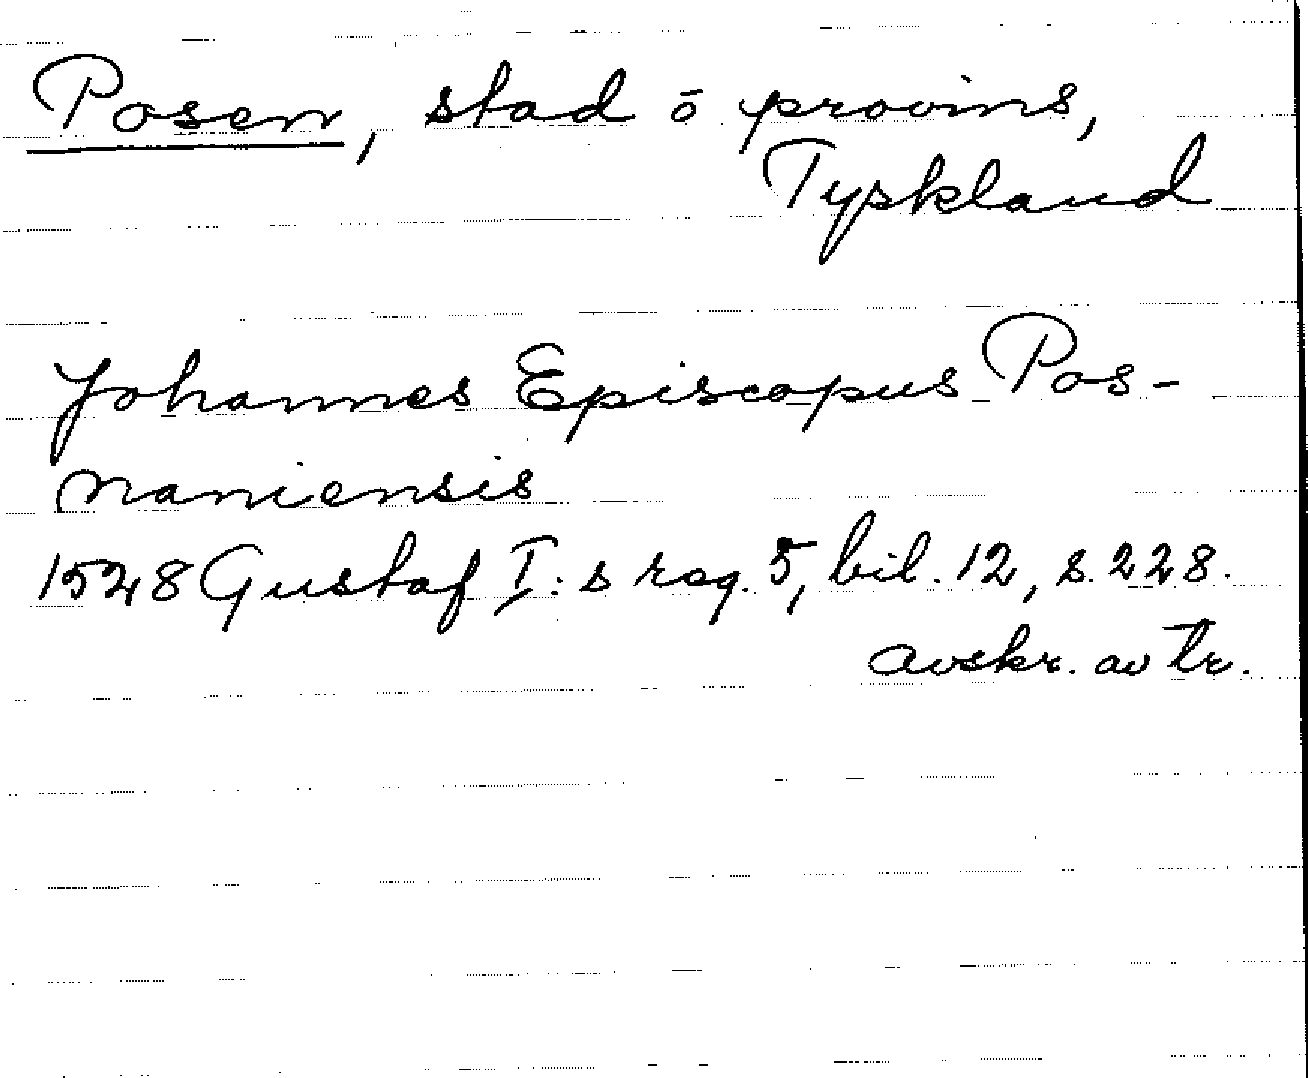 Posen, stad o provins,
Tyskland
Johannes Episcopus Pos-
naniensis
1528 Gustaf I:s reg. 5, bil. 12, s. 228.
avskr. av tr.